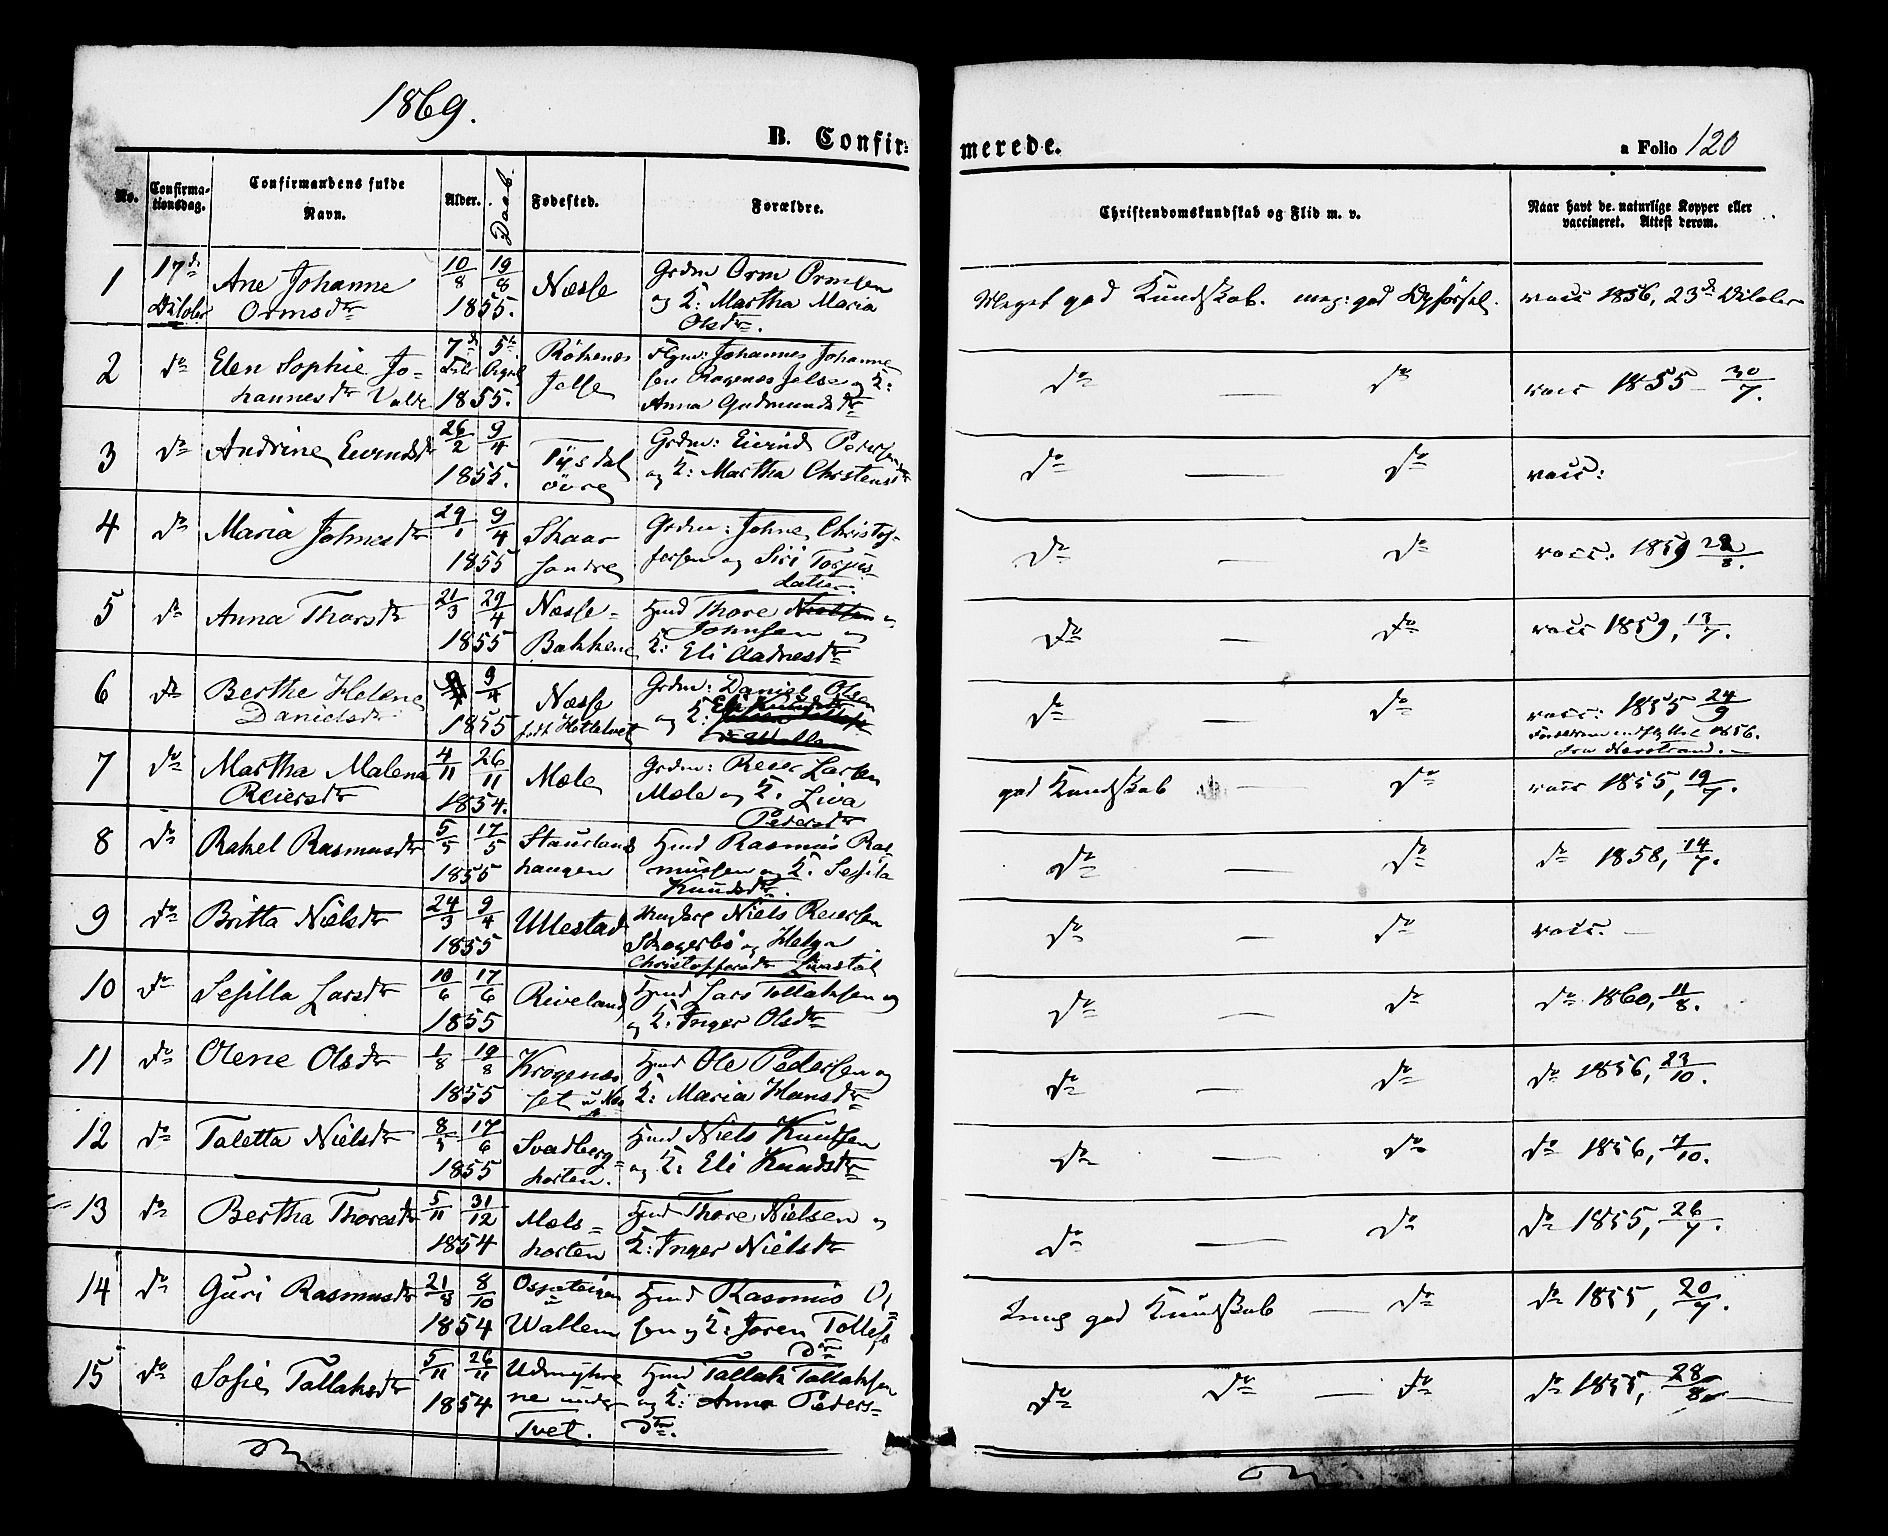 1869.
B. Confir-
merede.
a Folio 120
No.
Confirma-
tionsdag.
Confirmandens fulde
Navn.
Alder.
Daab.
Fødested.
Forældre.
Christendomskundskab og Flid m. v.
Naar havt de naturlige Kopper eller
vaccineret. Attest derom.
1 17de Ane Johanne 10/8 19/8 Næsse Grdm Orm Ormsen
Ormsdtr 1855. og K: Martha Maria
Olsdtr.
Meget god Kundskab. meg: god Opførsel. vacc 1856, 23de
2 do Elen Sophie Jo- 7de 5te Røkenæs Johannes Johanne
hannesdtr 1855. Jelse sen Jelse og K:
Anna Gudmundsdtr
do do vacc 1855 30/7.
3 do Andrine Eivindsdtr 26/2 9/4 Tysdal Grdm: Eivind Pedersen
1855. øvre og K: Martha Christensdtr
do — do vacc:
4 do Maria Johnesdtr 29/1 9/4 Skaar Grdm: Johne Christof-
1855 søndre fersen og Siri Torjus-
datter.
do — do vacc. 1859
5 do Anna Thorsdtr 21/3 29/4 Næsse- Hmd Thore
1855 Bakkene Johnsen og
K: Eli Aadnesdtr
do — do vacc 1859, 13/7.
6 do Berthe Helene 9/4 Næsse Grdm: Daniel Olsen
Danielsdtr 1855 født Hetlelvet og K:
do — do vacc: 1855 24/9
1856.
fra Nerstrand.
7 do Martha Malena 4/11 26/11 Mæle Grdm: Reier Larsen
Reiersdtr 1854. Mæle og K. Siva
Pedersdtr
god Kundskab — do vacc 1855, 19/7.
8 do Rakel Rasmusdtr 5/5 17/5 Staurlands Hmd Rasmus Ras-
1855 haugen mussen og K. Sesila
Knudsdtr.
do — do do 1858, 14/7.
9 do Britta Nielsdtr 24/3 9/4 Ullestad Niels Reiersen
1855 Skogerbø og Helga
Christoffersdtr
do — do vacc. —
10 do Sesilla Larsdtr 10/6 17/6 Riveland Hmd Lars Tollaksen og
1855 og K: Inger Olsdtr
do — do do 1860, 11/8.
11 do Olene Olsdtr 1/8 19/8 Krøgenæs Hmd Ole Pedersen og
1855 set K: Maria Hansdtr
do — do do 1856, 23/10.
12 do Taletta Nielsdtr 8/5 17/6 Svadberg- Hmd Niels Knudsen
1855 horten. og K: Eli Knudsdtr
do — do do 1856, 7/10.
13 do Bertha Thoresdtr 5/11 31/12 Mæls- Hmd Thore Nielsen og
1854 horten K: Inger Nielsdtr
do — do do 1855, 26/7.
14 do Guri Rasmusdtr 21/8 8/10 Hmd Rasmus Ol-
1854 Wallem sen og K: Joren Tollefs
dtr
god Kundskab — do do 1855, 20/7.
15 do Sofie Tallaksdtr 5/11 26/11 Hmd Tallak Tallaksen
1854 ne under og K: Anna Peders-
Tvet. dtr.
do do — do do 1855, 28/8.